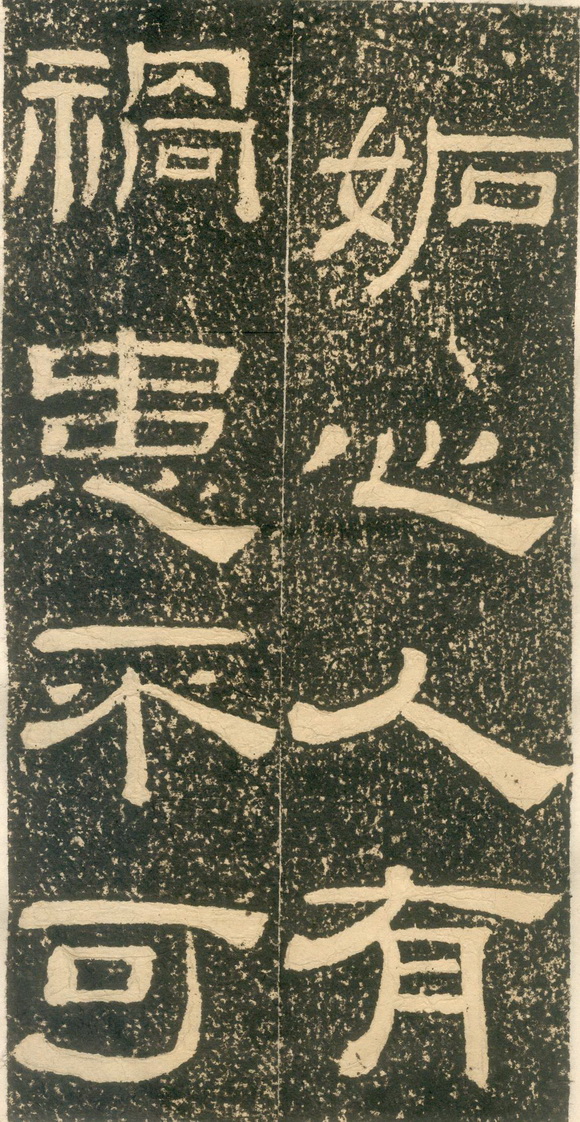 妬心人有
禍患不可